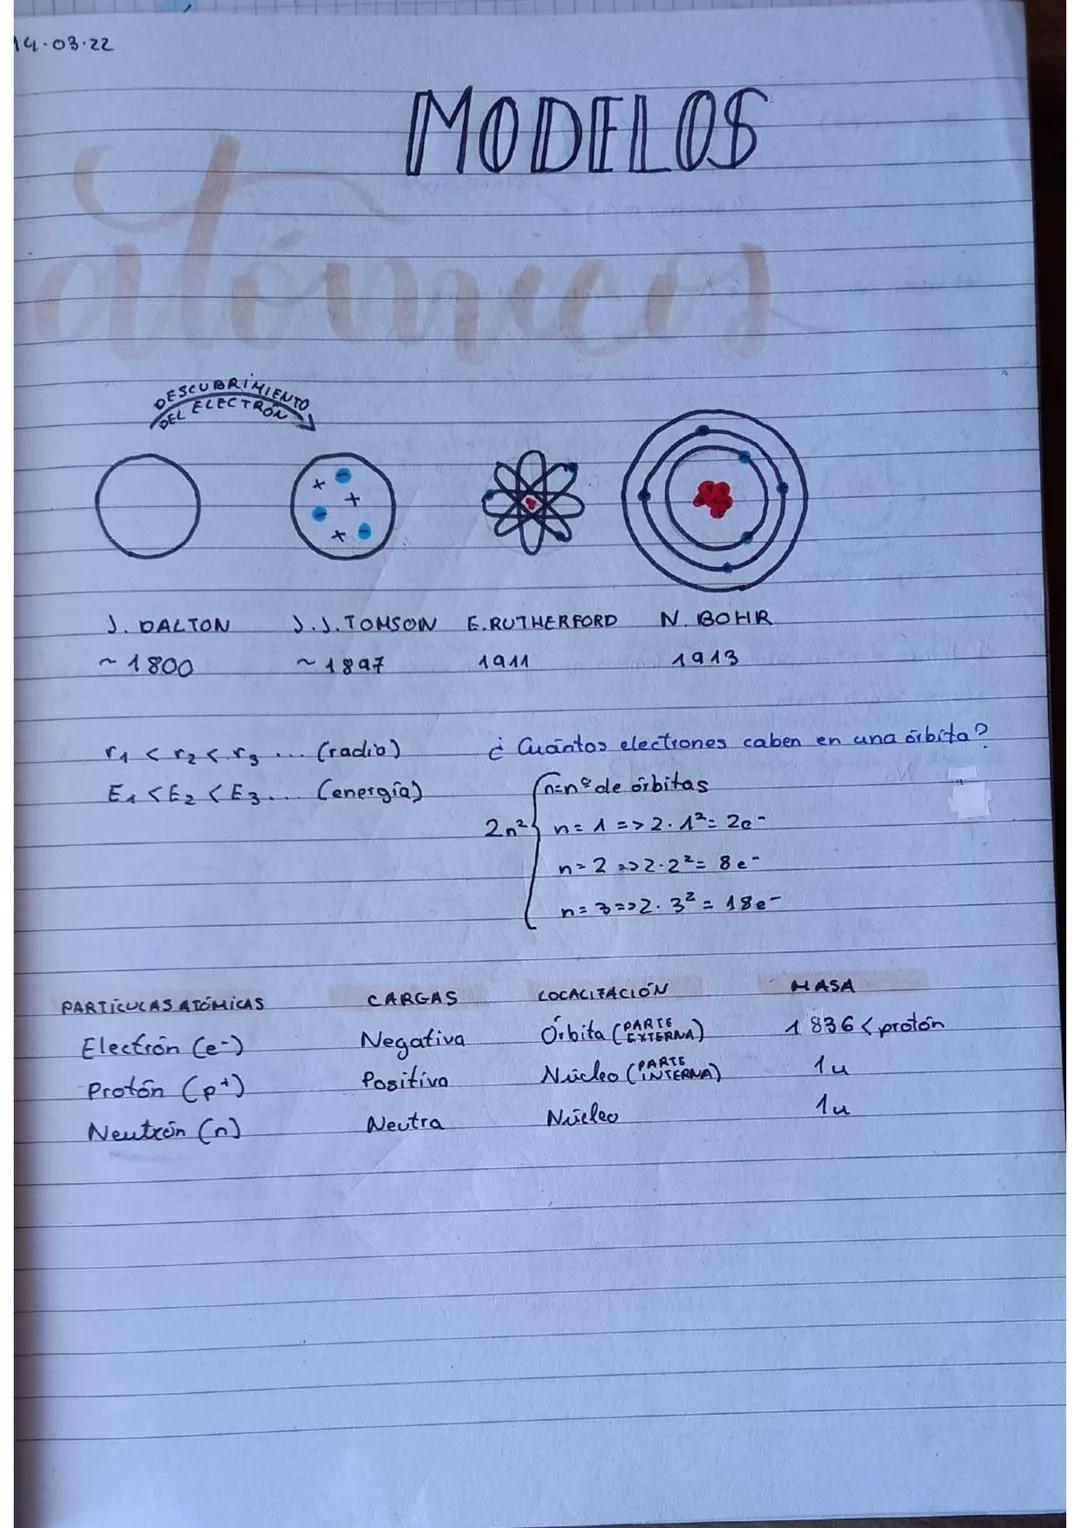 14.03.22
MODELOS
atómicos
DESCUBRIMIENTO
DEL ELECTRÓN
J. DALTON J.J. TOMSON E. RUTHERFORD N. BOHR
~1800 ~1897 1911 1913
r₁ < r₂ < r₃ ... (radio) ¿Cuántos electrones caben en una órbita?
E₁ < E₂ < E₃... (energía) n=nº de órbitas
2n² { n= 1 => 2·1² = 2e⁻
n=2 => 2·2² = 8e⁻
n=3 => 2·3² = 18e⁻
PARTÍCULAS ATÓMICAS CARGAS LOCALIZACIÓN MASA
Electrón (e⁻) Negativa Órbita (PARTE EXTERNA) 1836 < protón
Protón (p⁺) Positiva Núcleo (PARTE INTERNA) 1u
Neutrón (n) Neutra Núcleo 1u